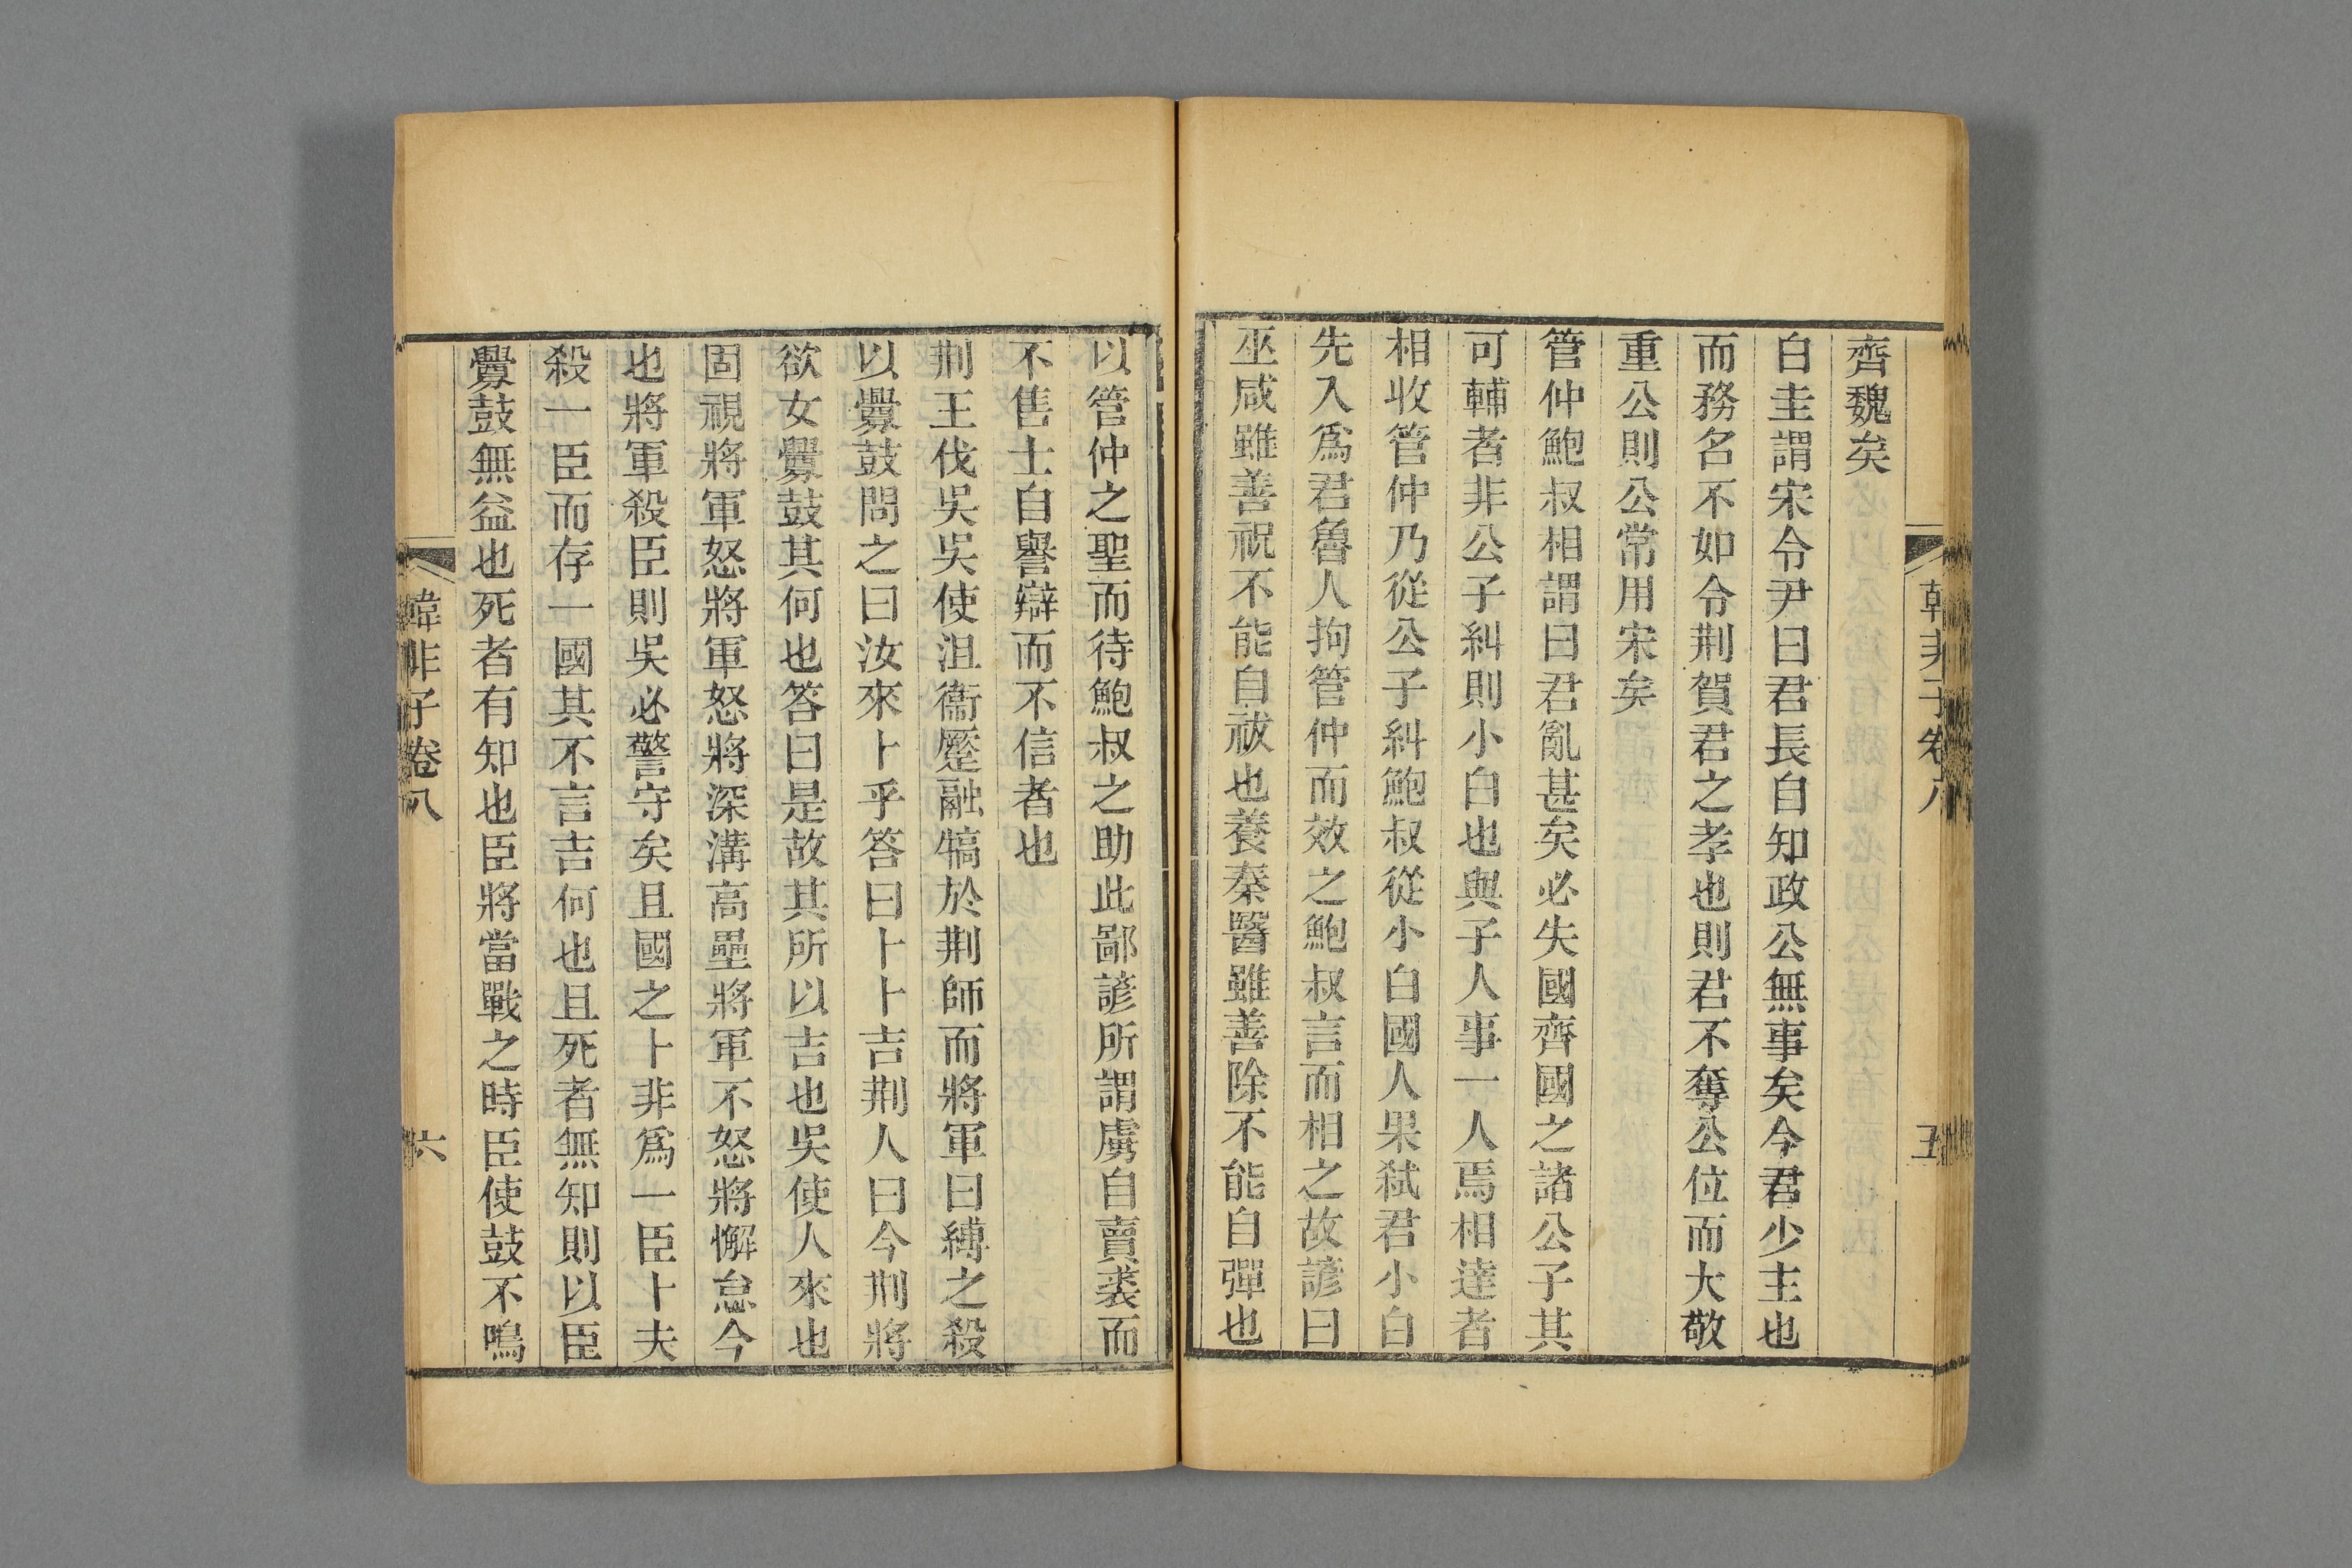 韓非子卷八
五
齊魏矣
白圭謂宋令尹曰君長自知政公無事矣今君少主也
而務名不如令荆賀君之孝也則君不奪公位而大敬
重公則公常用宋矣
管仲鮑叔相謂曰君亂甚矣必失國齊國之諸公子其
可輔者非公子糾則小白也與子人事一人焉相達者
相收管仲乃從公子糾鮑叔從小白國人果弑君小白
先入爲君魯人拘管仲而效之鮑叔言而相之故諺曰
巫咸雖善祝不能自祓也養秦醫雖善除不能自彈也
以管仲之聖而待鮑叔之助此鄙諺所謂虜自賣裘而
不售士自譽辯而不信者也
荆王伐吳吳使沮衞蹷融犒於荆師而將軍曰縛之殺
以釁鼓問之曰汝來卜乎答曰卜卜吉荆人曰今荆將
欲女釁鼓其何也答曰是故其所以吉也吳使人來也
固視將軍怒將軍怒將深溝高壘將軍不怒將懈怠今
也將軍殺臣則吳必警守矣且國之卜非爲一臣卜夫
殺一臣而存一國其不言吉何也且死者無知則以臣
釁鼓無益也死者有知也臣將當戰之時臣使鼓不鳴
韓非子卷八
六